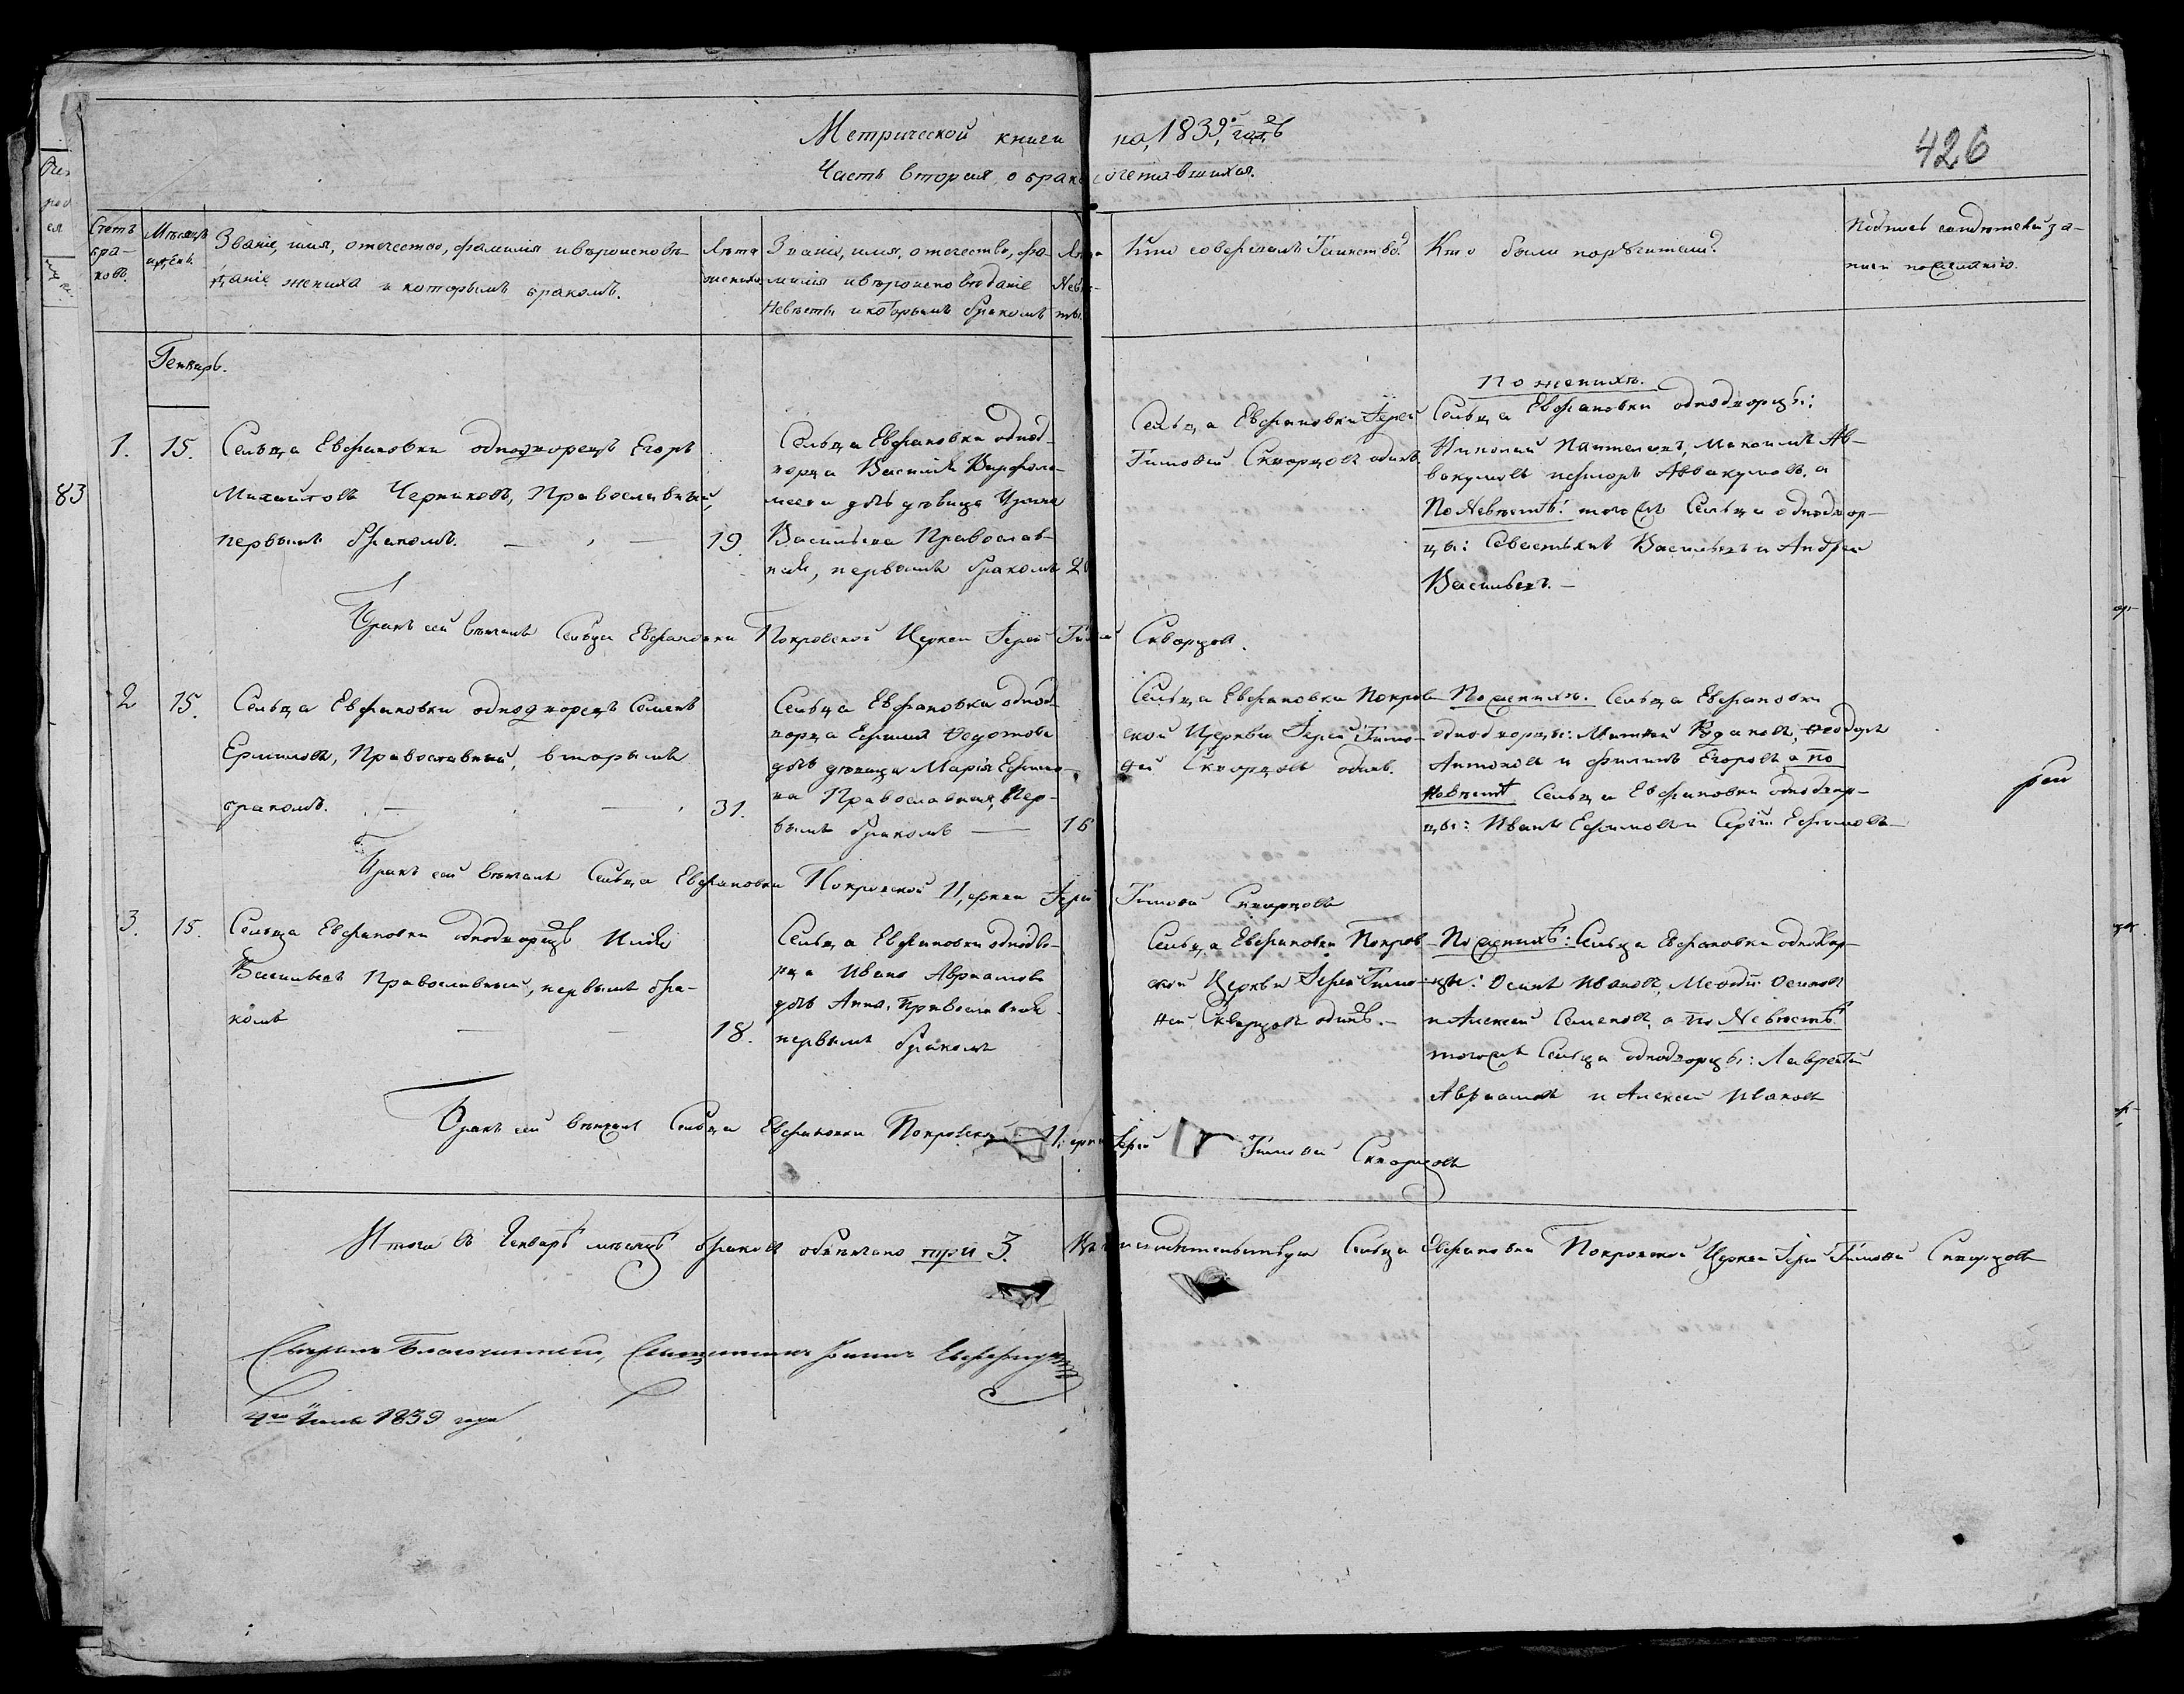 Метрической книги на 1839й годъ
Часть вторая, о бракосочетавшихся.
426
Счетъ бра-ковъ.
Мѣсяцъ и день.
Званіе, имя, отечество, фамилія и вѣроисповѣ-
даніе жениха и которымъ бракомъ.
Лѣта жениха.
Званіе, имя, отечество, фа-
милія и вѣроисповѣданіе
Невѣсты и которымъ бракомъ
Лѣта Невѣ-сты.
Кто совершалъ Таинство?
Кто были поручители?
Подпись свидѣтелей за-
писи по желанію.
Генварь.
83
1. 15.
Сельца Евфановки однодворецъ Егоръ
Михайловъ Черниковъ, Православный,
первымъ бракомъ. 19.
Сельца Евфановки однод-
ворца Василія Варфоло-
меева дочь дѣвица
Васильева Православ-
ная, первымъ бракомъ 20
Сельца Евфановки Іерей
Тимофей Скворцовъ одинъ.
По женихѣ.
Сельца Евфановки однодворцы:
Николай Пантелеевъ, Максимъ Ав-
вакумовъ Аввакумовъ, а
По Невѣстѣ: тогожъ Сельца однодвор-
цы: Севастьянъ Васильевъ и Андрей
Васильевъ. —
Бракъ сей вѣнчалъ Сельца Евфановки Покровской Церкви Іерей Тимофей Скворцовъ.
2 15.
Сельца Евфановки однодворецъ Семенъ
Ермиловъ, Православный, вторымъ
бракомъ. 31.
Сельца Евфановки однод-
ворца Ефима Федотова
дочь дѣвица Марія Ефимо-
ва Православная, пер-
вымъ бракомъ — 16
Сельца Евфановки Покров-
ской Церкви Іерей Тимо-
фей Скворцовъ одинъ.
По женихѣ. Сельца Евфановки
однодворцы:
Антоновъ и Филипъ Егоровъ, а по
Невѣстѣ Сельца Евфановки однодвор-
цы: Иванъ Ефимовъ и Сергѣй Ефимовъ
Бракъ сей вѣнчалъ Сельца Евфановки Покровской Церкви Іерей Тимофей Скворцовъ
3. 15.
Сельца Евфановки однодворецъ Илья
Васильевъ Православный, первымъ бра-
комъ 18.
Сельца Евфановки однодво-
рца Ивана Авраамова
дочь Анна, Православная
первымъ бракомъ
Сельца Евфановки Покров-
ской Церкви Іерей Тимо-
фей Скворцовъ одинъ. —
По женихѣ: Сельца Евфановки однодвор-
цы: Осипъ Ивановъ, Мефодій Осиповъ
и Алексей Семеновъ, а по Невѣстѣ:
тогожъ Сельца однодворцы: Лаврентій
Авраамовъ и Алексей Ивановъ
Бракъ сей вѣнчалъ Сельца Евфановки Покровской Церкви Іерей Тимофей Скворцовъ
Итого въ Генварѣ мѣсяцѣ браковъ обвѣнчано три 3. свидѣтельствую Сельца Евфановки Покровской Церкви Іерей Тимофей Скворцовъ
Свѣрилъ Благочинный, Священникъ Іоаннъ
4го 1839 года